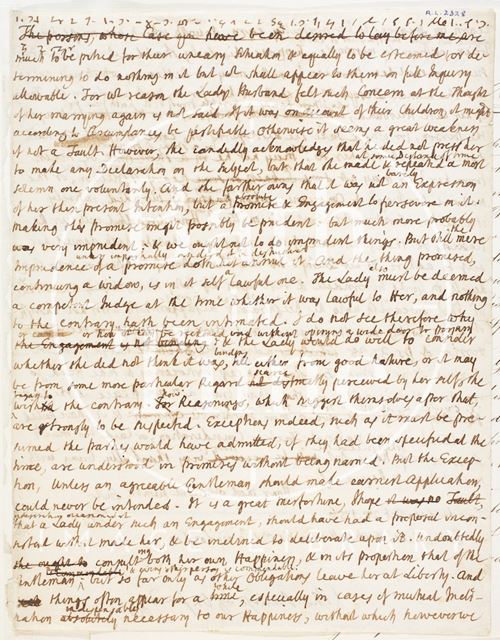 A.L. 2328
The persons, whose Case you have been desired to lay before me, are
much to be pitied for their uneasy Situation & equally to be esteemed for de-
termining to do nothing in it but wt shall appear to them on full Inquiry
allowable. For wt reason the Ladys Husband felt such Concern at the Thought
of her marrying again is not said. If it was on Account of their Children, it might
according to Circumstances be justifiable otherwise it seems a great weakness
if not a Fault. However, she candidly acknowledges that he did not press her
at some Distance of time
to make any Declaration on the Subject, but that she made & repeated a most
barely
solemn one voluntarily. And she farther owns that it was not an Expression
absolute
of her then present Intention, but a Promise & Engagement to persevere in it.
making this Promise might possibly be prudent: but much more probably
the
was very imprudent: & we ought not to do imprudent things. But still mere
unless exceptionally evident & destructive
Imprudence of a promise doth not annul it. And the thing promised,
continuing a widow, is in it self a lawful one. The Lady also must be deemed
a competent Judge at the time whether it was lawful to Her, and nothing
to the contrary hath been intimated. I do not see therefore why
or how it can be reckoned void without opening a wide door to perjury
the Engagement is not binding: & the Lady would do well to consider
binding
whether she did not think it was, either from good Nature, or it may
scarce
be from some more particular Regard distinctly perceived by her self, she
began to
wish the contrary. For Reasonings, which suggest themselves after that,
are strongly to be suspected. Exceptions indeed, such as it must be pre-
sumed the parties would have admitted, if they had been specified at the
time, are understood in promises without being named. But the Excep-
tion, Unless an agreeable Gentleman should make earnest Application,
could never be intended. It is a great misfortune, I hope it was no Fault,
that a Lady under such an Engagement, should have had a proposal incon-
sistent with it made her, & be inclined to deliberate upon it. Undoubtedly
she ought to consult both her own Happiness, & in its proportion that of the
Gentleman; but so far only as other Obligations leave her at Liberty. And
while
things often appear for a time, especially in cases of mutual Incli-
indispensably
nation absolutely necessary to our Happiness, without which however we